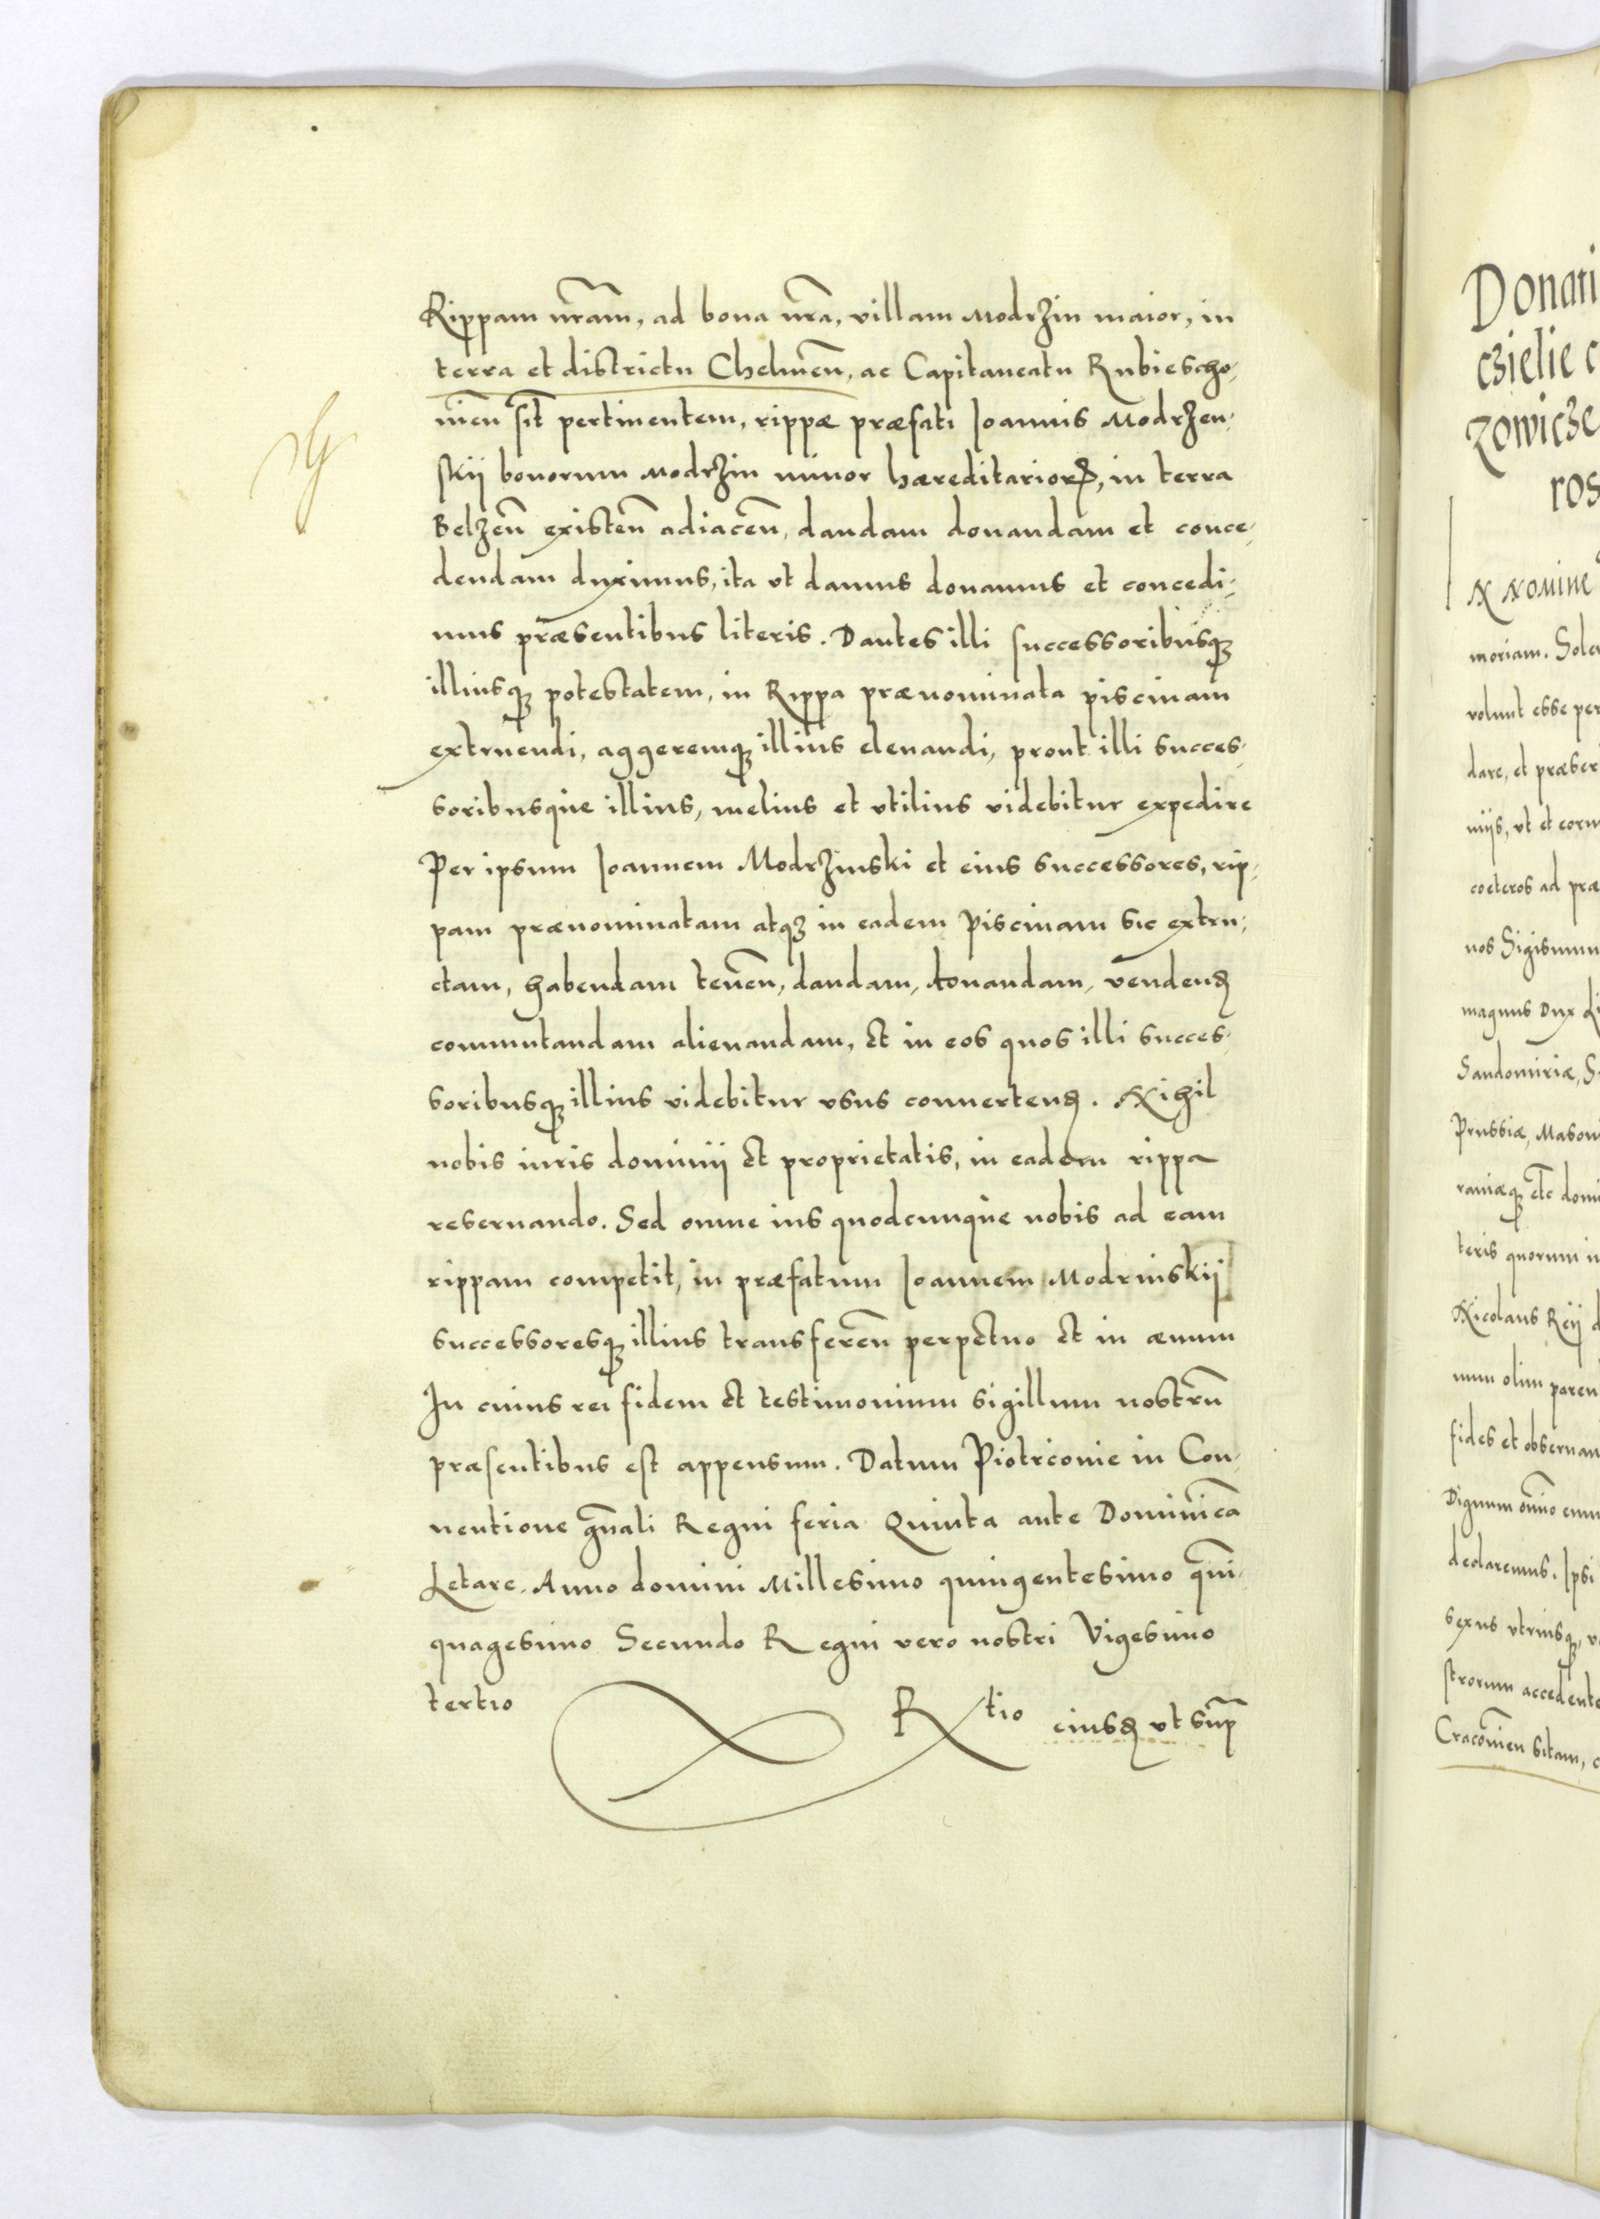 Rippam nr̃am, ad bona nr̃a, villam Modrzin maior, in
terra et districtu Chelmeñ, ac Capitaneatu Rubiescho-
vieñ sit pertinentem, rippæ præfati Ioannis Modrzen-
skij bonorum Modrzin minor hæreditarioꝝ, in terra
Belzeñ existeñ adiaceñ, dandam donandam et conce-
dendam duximus, ita vt damus donamus et concedi-
mus præsentibus literis. Dantes illi successoribusqꝫ
illiusqꝫ potestatem, in Rippa prænominata piscinam
extruendi, aggeremqꝫ illius eleuandi, prout illi succes-
soribusque illius, melius et vtilius videbitur expedire
Per ipsum Ioannem Modrzinski et eius successores, rip-
pam prænominatam atqꝫ in eadem Piscinam sic extru-
ctam, habendam teneñ, dandam, donandam, vendenꝺ
commutandam alienandam, et in eos quos illi succes-
soribusqꝫ illius videbitur vsus conuertenꝺ. Nihil
nobis iuris dominij et proprietatis, in eadem rippa
reseruando. Sed omne ius quodcunque nobis ad eam
rippam competit, in præfatum Ioannem Modrinskij
successoresqꝫ illius transfereñ perpetuo et in æuum
In cuius rei fidem et testimonium sigillum nostrũ
præsentibus est appensum. Datum Piotrconie in Con-
uentione gñali Regni feria Quinta ante Dominicã
Letare. Anno domini Millesimo quingentesimo quin-
quagesimo Secundo Regni vero nostri Vigesimo
tertio
Rtio eiusꝺ vt sup̃
Donati
czielie c
zowicze
ros
N NOMINE
moriam. Sole
volunt esse per
dare, et præser
niis, vt et eoru
coeteros ad præ
nos Sigismun
magnus Dux Li
Sandomiriæ, S
Prussiæ, Masoui
raniæqꝫ etc domi
teris quorum in
Nicolaus Reij d
num olim paren
fides et obseruan
Dignum om̃no enim
declaremus. Ipsi
sexus vtriusqꝫ, v
strorum accedente
Cracouieñ sitam, c